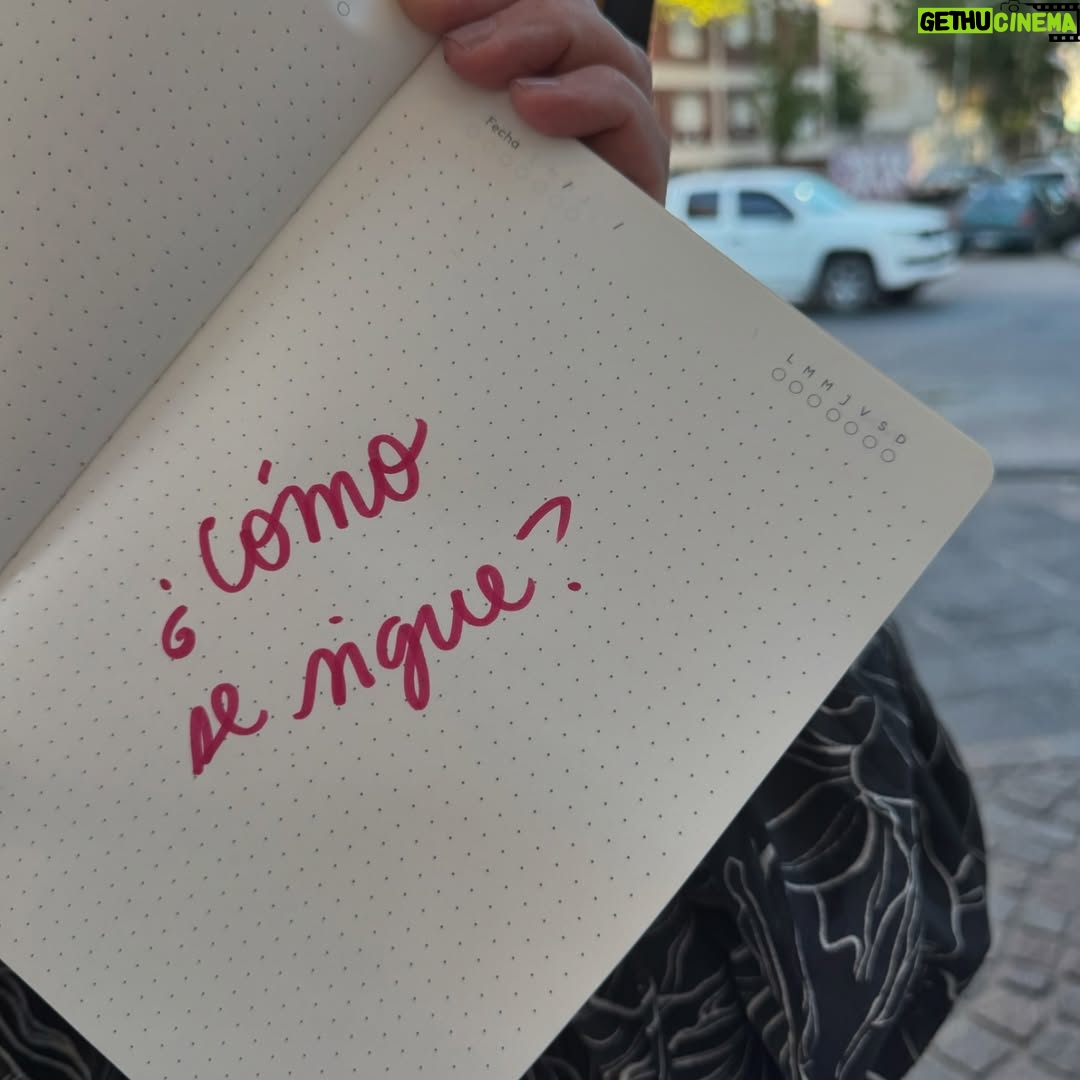 GETHUCINEMA
Fecha / /
L M M J V S D
¿cómo
se sigue?